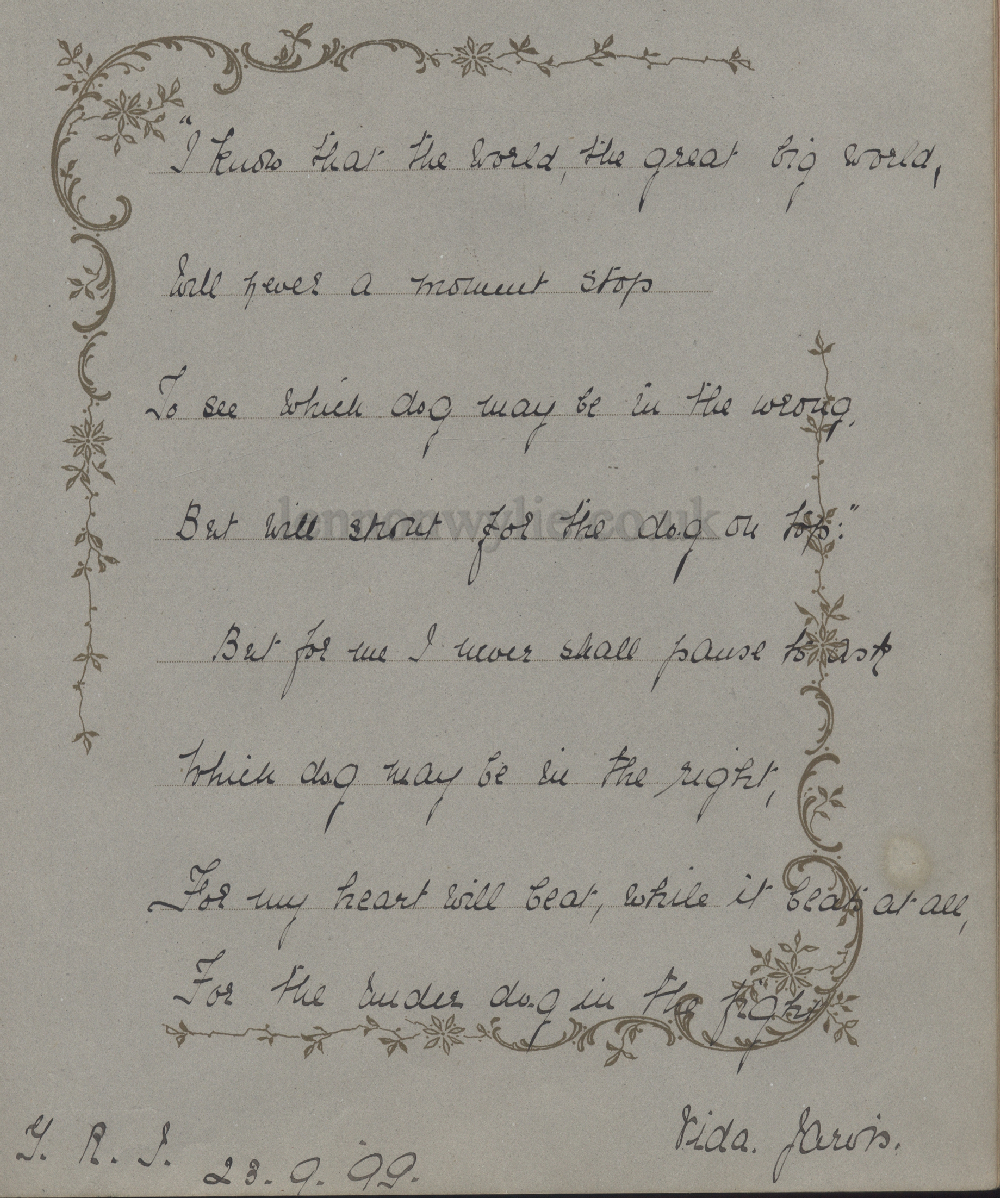 "I know that the world, the great big world,
Will never a moment stop
To see which dog may be in the wrong.
But will shout for the dog on top."
lennonwylie.co.uk
But for me I never shall pause to ask
Which dog may be in the right,
For my heart will beat, while it beats at all,
For the under dog in the fight
Vida. Jarvis.
Y. R. I. 23.9.'99.